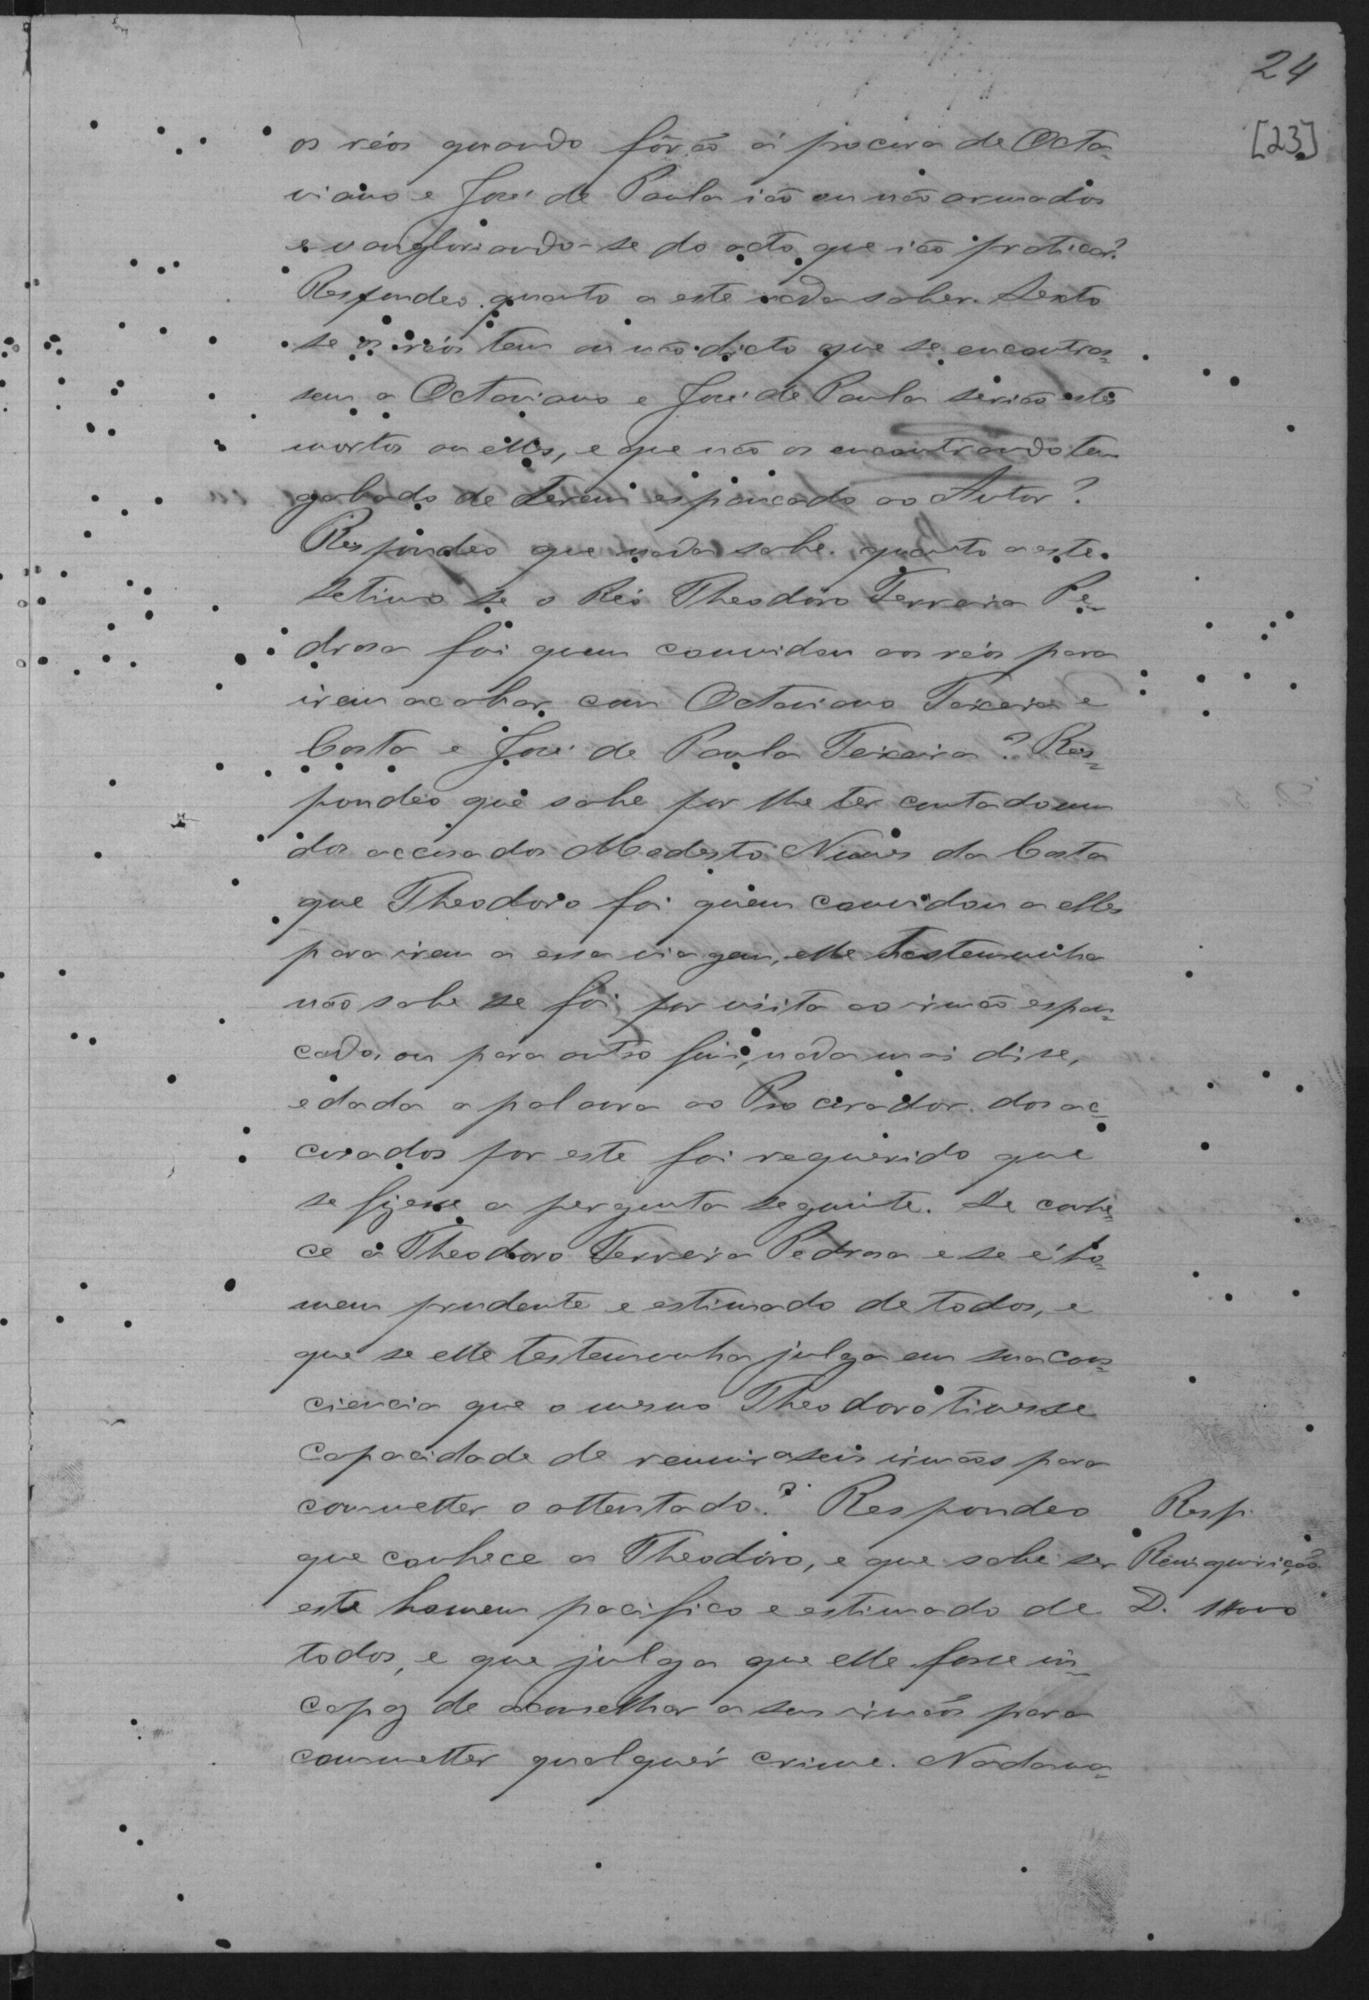 24
[23]
os réos quando fôrão á procura de Octa-
viano e José de Paula ião ou não armados
e vangloriando-se do acto que ião praticar?
Respondeo quanto a este nada saber. Sexto
se os réos tem ou não dicto que se encontras-
sem a Octaviano e José de Paula serião estes
mortos ou elles, e que não os encontrando tem
gabado de terem espancado ao Autor?
Respondeo que nada sabe quanto a este.
Setimo se o Réo Theodoro Ferreira Pe-
drosa foi quem convidou aos réos para
irem acabar com Octaviano Teixeira e
Costa e José de Paula Teixeira? Res-
pondeo que sabe por lhe ter contado um
dos accusados Modesto Nunes da Costa
que Theodoro foi quem convidou a elles
para irem a essa viagem, elle testemunha
não sabe se foi por visita ao irmão espan-
cado, ou para outro fim, nada mai dise,
e dada a palavra ao Procurador dos ac-
cusados por este foi requerido que
se fizesse a pergunta seguinte. Se conhe-
ce a Theodoro Ferreira Pedrosa e se é ho-
mem prudente e estimado de todos, e
que se elle testemunha julga em sua cons-
ciencia que o mesmo Theodoro tivesse
capacidade de reunir a seus irmãos para
commetter o attentado? Respondeo
Resp.
que conhece a Theodoro, e que sabe ser
Reinquirição
este homem pacifico e estimado de
D.
todos, e que julga que elle fosse in-
capaz de aconselhar a seus irmãos para
commetter qualquér crime. Nada ma-